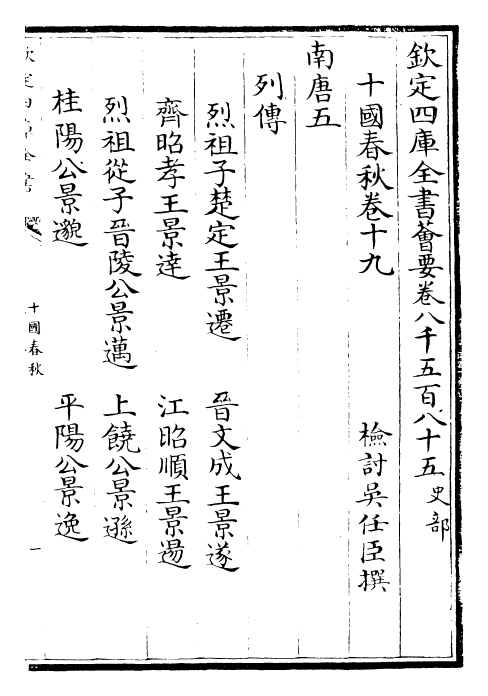 欽定四庫全書薈要卷八千五百八十五 史部
十國春秋卷十九 檢討吳任臣撰
南唐五
列傳
烈祖子楚定王景遷 晉文成王景遂
齊昭孝王景達 江昭順王景逷
烈祖從子晉陵公景邁 上饒公景遜
桂陽公景邈 平陽公景逸
十國春秋
一